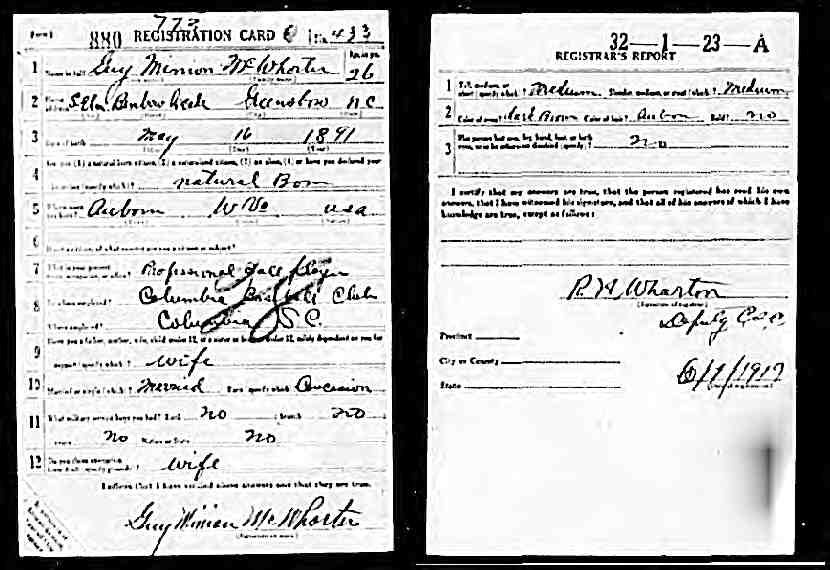 Form 1
773
880 REGISTRATION CARD No. 433
1 Name in full Guy Minion McWhorter Age in yrs. 26
2 S Elm Benbow Greensboro N.C.
3 Date of birth May 16 1891
4 Are you (1) a natural born citizen, (2) a naturalized citizen, (3) an alien, (4) or have you declared your
intention (specify which)? natural Born
5 Where were you born? Auborn W Va USA
6 If not a citizen, of what country are you a citizen or subject?
7 What is your present trade, occupation, or office? Professional Ball Player
8 By whom employed? Columbia Baseball Club
Where employed? Columbia S.C.
9 Have you a father, mother, wife, child under 12, or a sister or brother under 12, solely dependent on you for
support (specify which)? wife
10 Married or single (which)? Married Race (specify which)? Caucasion
11 What military service have you had? Rank no branch no
years no Nation or State no
12 Do you claim exemption from draft (specify grounds)? wife
I affirm that I have verified above answers and that they are true.
Guy Minion McWhorter
(Signature or mark)
32—1—23—A
REGISTRAR'S REPORT
1 Tall, medium, or short (specify which)? Medium Slender, medium, or stout (which)? Medium
2 Color of eyes? Dark Brown Color of hair? Auborn Bald? no
3 Has person lost arm, leg, hand, foot, or both
eyes, or is he otherwise disabled (specify)? no
I certify that my answers are true, that the person registered has read his own
answers, that I have witnessed his signature, and that all of his answers of which I have
knowledge are true, except as follows:
P. H. Wharton
(Signature of registrar)
Deputy C.S.C.
Precinct
City or County
State
6/1/1917